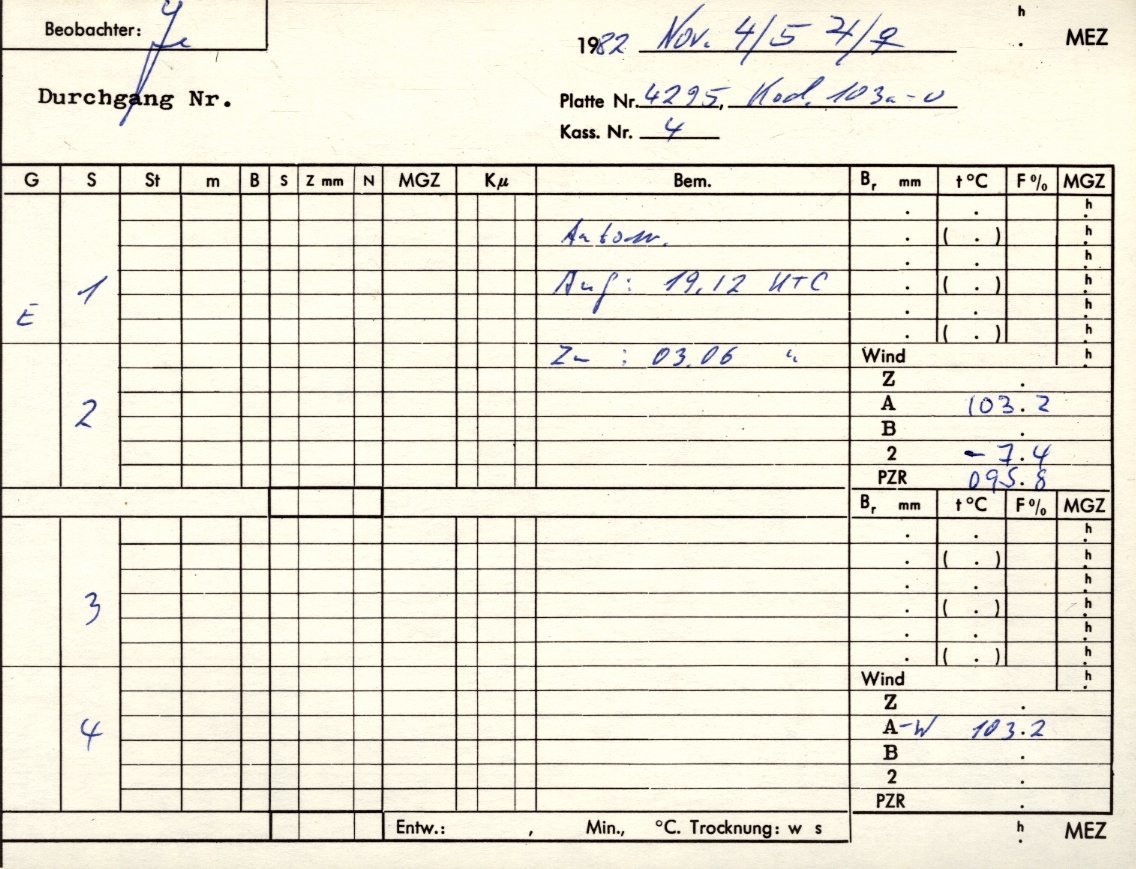 Beobachter:
1982 Nov. 4/5
h . MEZ
Durchgang Nr.
Platte Nr. 4295, Kod. 103a-O
Kass. Nr. 4
G S St m B S Z mm N MGZ Kμ Bem. Br mm t °C F % MGZ
. . h
Autom. . ( . ) h
. . h
1 Auf: 19.12 UTC . ( . ) h
E . . h
. ( . ) h
Zu : 03.06 " Wind h
Z .
2 A 103.2
B .
2 - 7.4
PZR 095.8
Br mm t °C F % MGZ
. . h
. ( . ) h
. . h
3 . ( . ) h
. . h
. ( . ) h
Wind h
Z .
4 A-W 103.2
B .
2 .
PZR .
Entw.: , Min., °C. Trocknung: w s h . MEZ